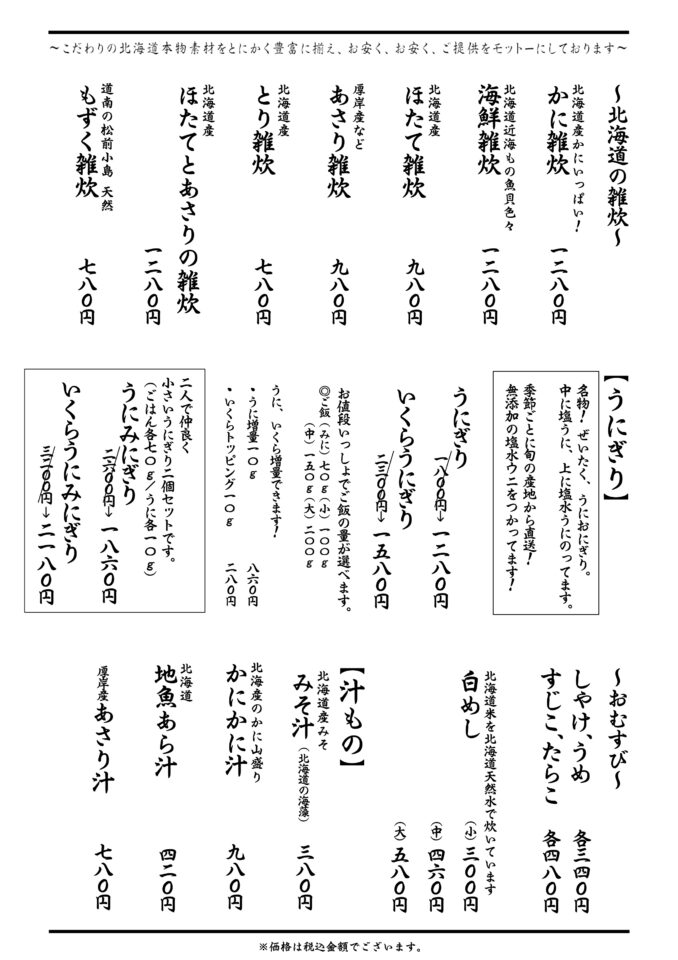 ～こだわりの北海道本物素材をとにかく豊富に揃え、お安く、お安く、ご提供をモットーにしております～
～北海道の雑炊～
北海道産かにいっぱい！
かに雑炊 一二八〇円
北海道近海もの魚貝色々
海鮮雑炊 一二八〇円
北海道産
ほたて雑炊 九八〇円
厚岸産など
あさり雑炊 九八〇円
北海道産
とり雑炊 七八〇円
北海道産
ほたてとあさりの雑炊
一二八〇円
道南の松前小島 天然
もずく雑炊 七八〇円
【うにぎり】
名物！ぜいたく、うにおにぎり。
中に塩うに、上に塩水うにのってます。
季節ごとに旬の産地から直送！
無添加の塩水ウニをつかってます！
うにぎり
一八〇〇円→一二八〇円
いくらうにぎり
二三〇〇円→一五八〇円
お値段いっしょでご飯の量が選べます。
◎ご飯（みに）七〇ｇ（小）一〇〇ｇ
（中）一五〇ｇ（大）二〇〇ｇ
うに、いくら増量できます！
・うに増量一〇ｇ 八六〇円
・いくらトッピング一〇ｇ 二八〇円
二人で仲良く
小さいうにぎり二個セットです。
（ごはん各七〇ｇ／うに各一〇ｇ）
うにみにぎり
二六〇〇円→一八六〇円
いくらうにみにぎり
三二〇〇円→二一八〇円
～おむすび～
しゃけ、うめ 各三四〇円
すじこ、たらこ 各四八〇円
北海道米を北海道天然水で炊いています
白めし （小）三〇〇円
（中）四六〇円
（大）五八〇円
【汁もの】
北海道産みそ
みそ汁（北海道の海藻） 三八〇円
北海産のかに山盛り
かにかに汁 九八〇円
北海道
地魚あら汁 四二〇円
厚岸産あさり汁 七八〇円
※価格は税込金額でございます。